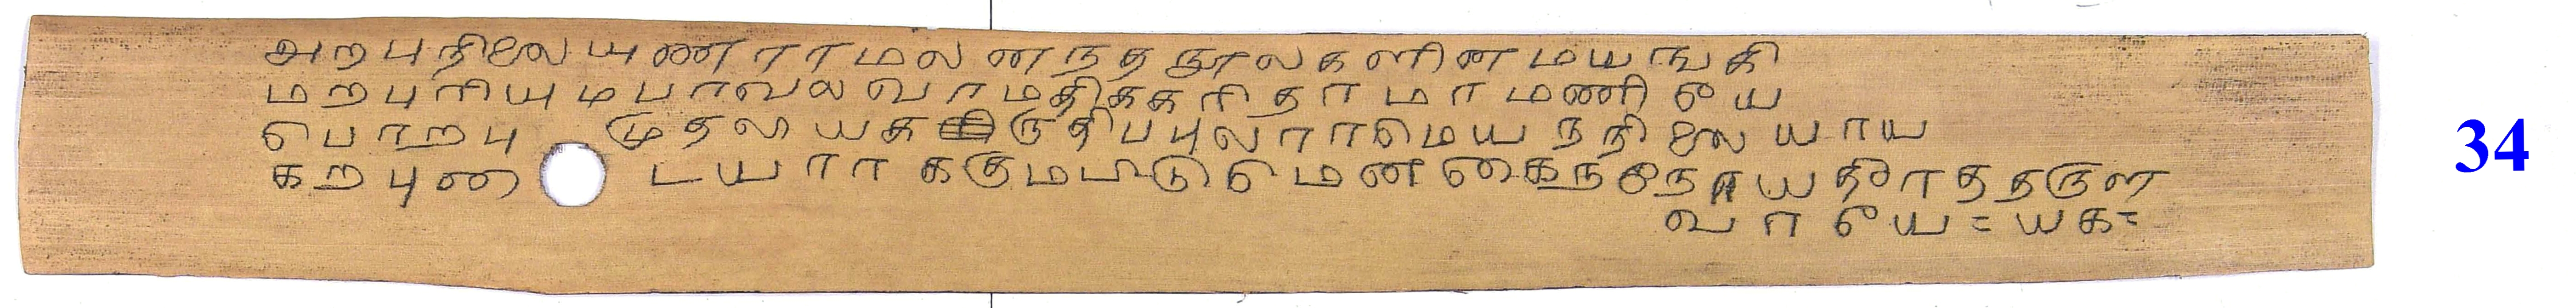 அறபுநிலையுணராமலனநதநூலகளினமயஙகி
மறபுரியுமபாவலவாமதிககரிதாமாமணியே
பொறபு முதலயக ருதிபபுலராமெயநநிலையாய
கறபுடையாரககுமபிடுமெனகைநநோயதீரததருள
வாயே = யக =
34